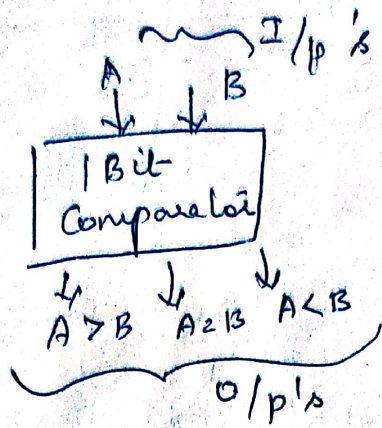 I/p's
A B
1 Bit
Comparator
A > B A = B A < B
O/p's